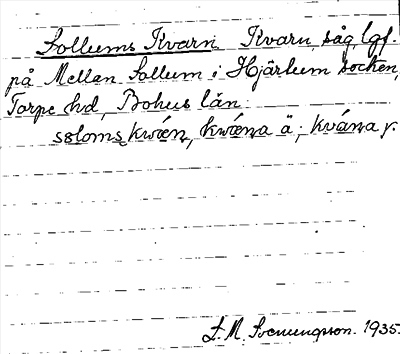 Sollums Kvarn Kvarn, såg, lgf.
på Mellan Sollum i Hjärtum socken,
Torpe hd, Bohus län.
sɷloms kwǽn, kwǽna ä; kvána y.
S. M. Svenungsson. 1935.